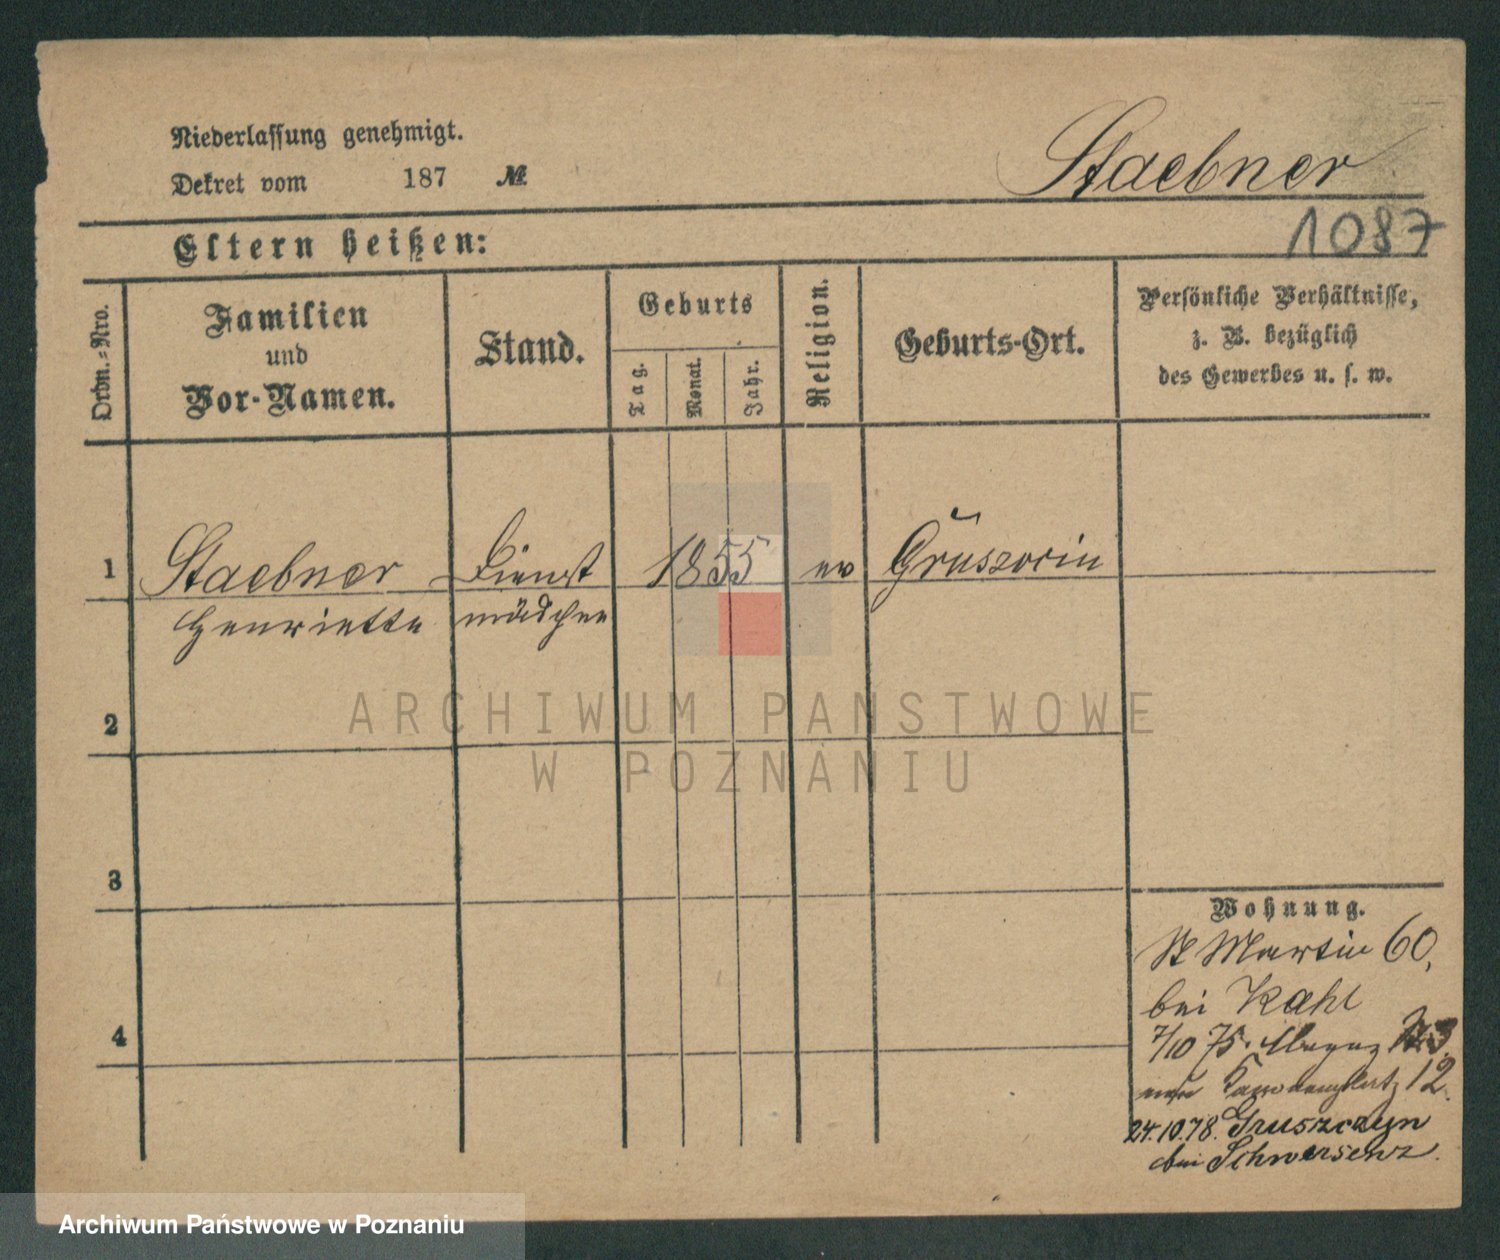 Niederlassung genehmigt.
Dekret vom 187 №
Staebner
1087
Eltern heißen:
Ordn.-Nro.
Familien
und
Vor-Namen.
Stand.
Geburts
Tag.
Monat.
Jahr.
Religion.
Geburts-Ort.
Persönliche Verhältnisse,
z. B. bezüglich
des Gewerbes u. s. w.
1 Staebner Dienst 1855 ev
Henriette mädchen
2
3
4
Wohnung.
St Martin 60,
bei Kahl
7/10 75.
12.
24.10.78. Gruszczyn
bei Schwersenz.
ARCHIWUM PAŃSTWOWE
W POZNANIU
Archiwum Państwowe w Poznaniu